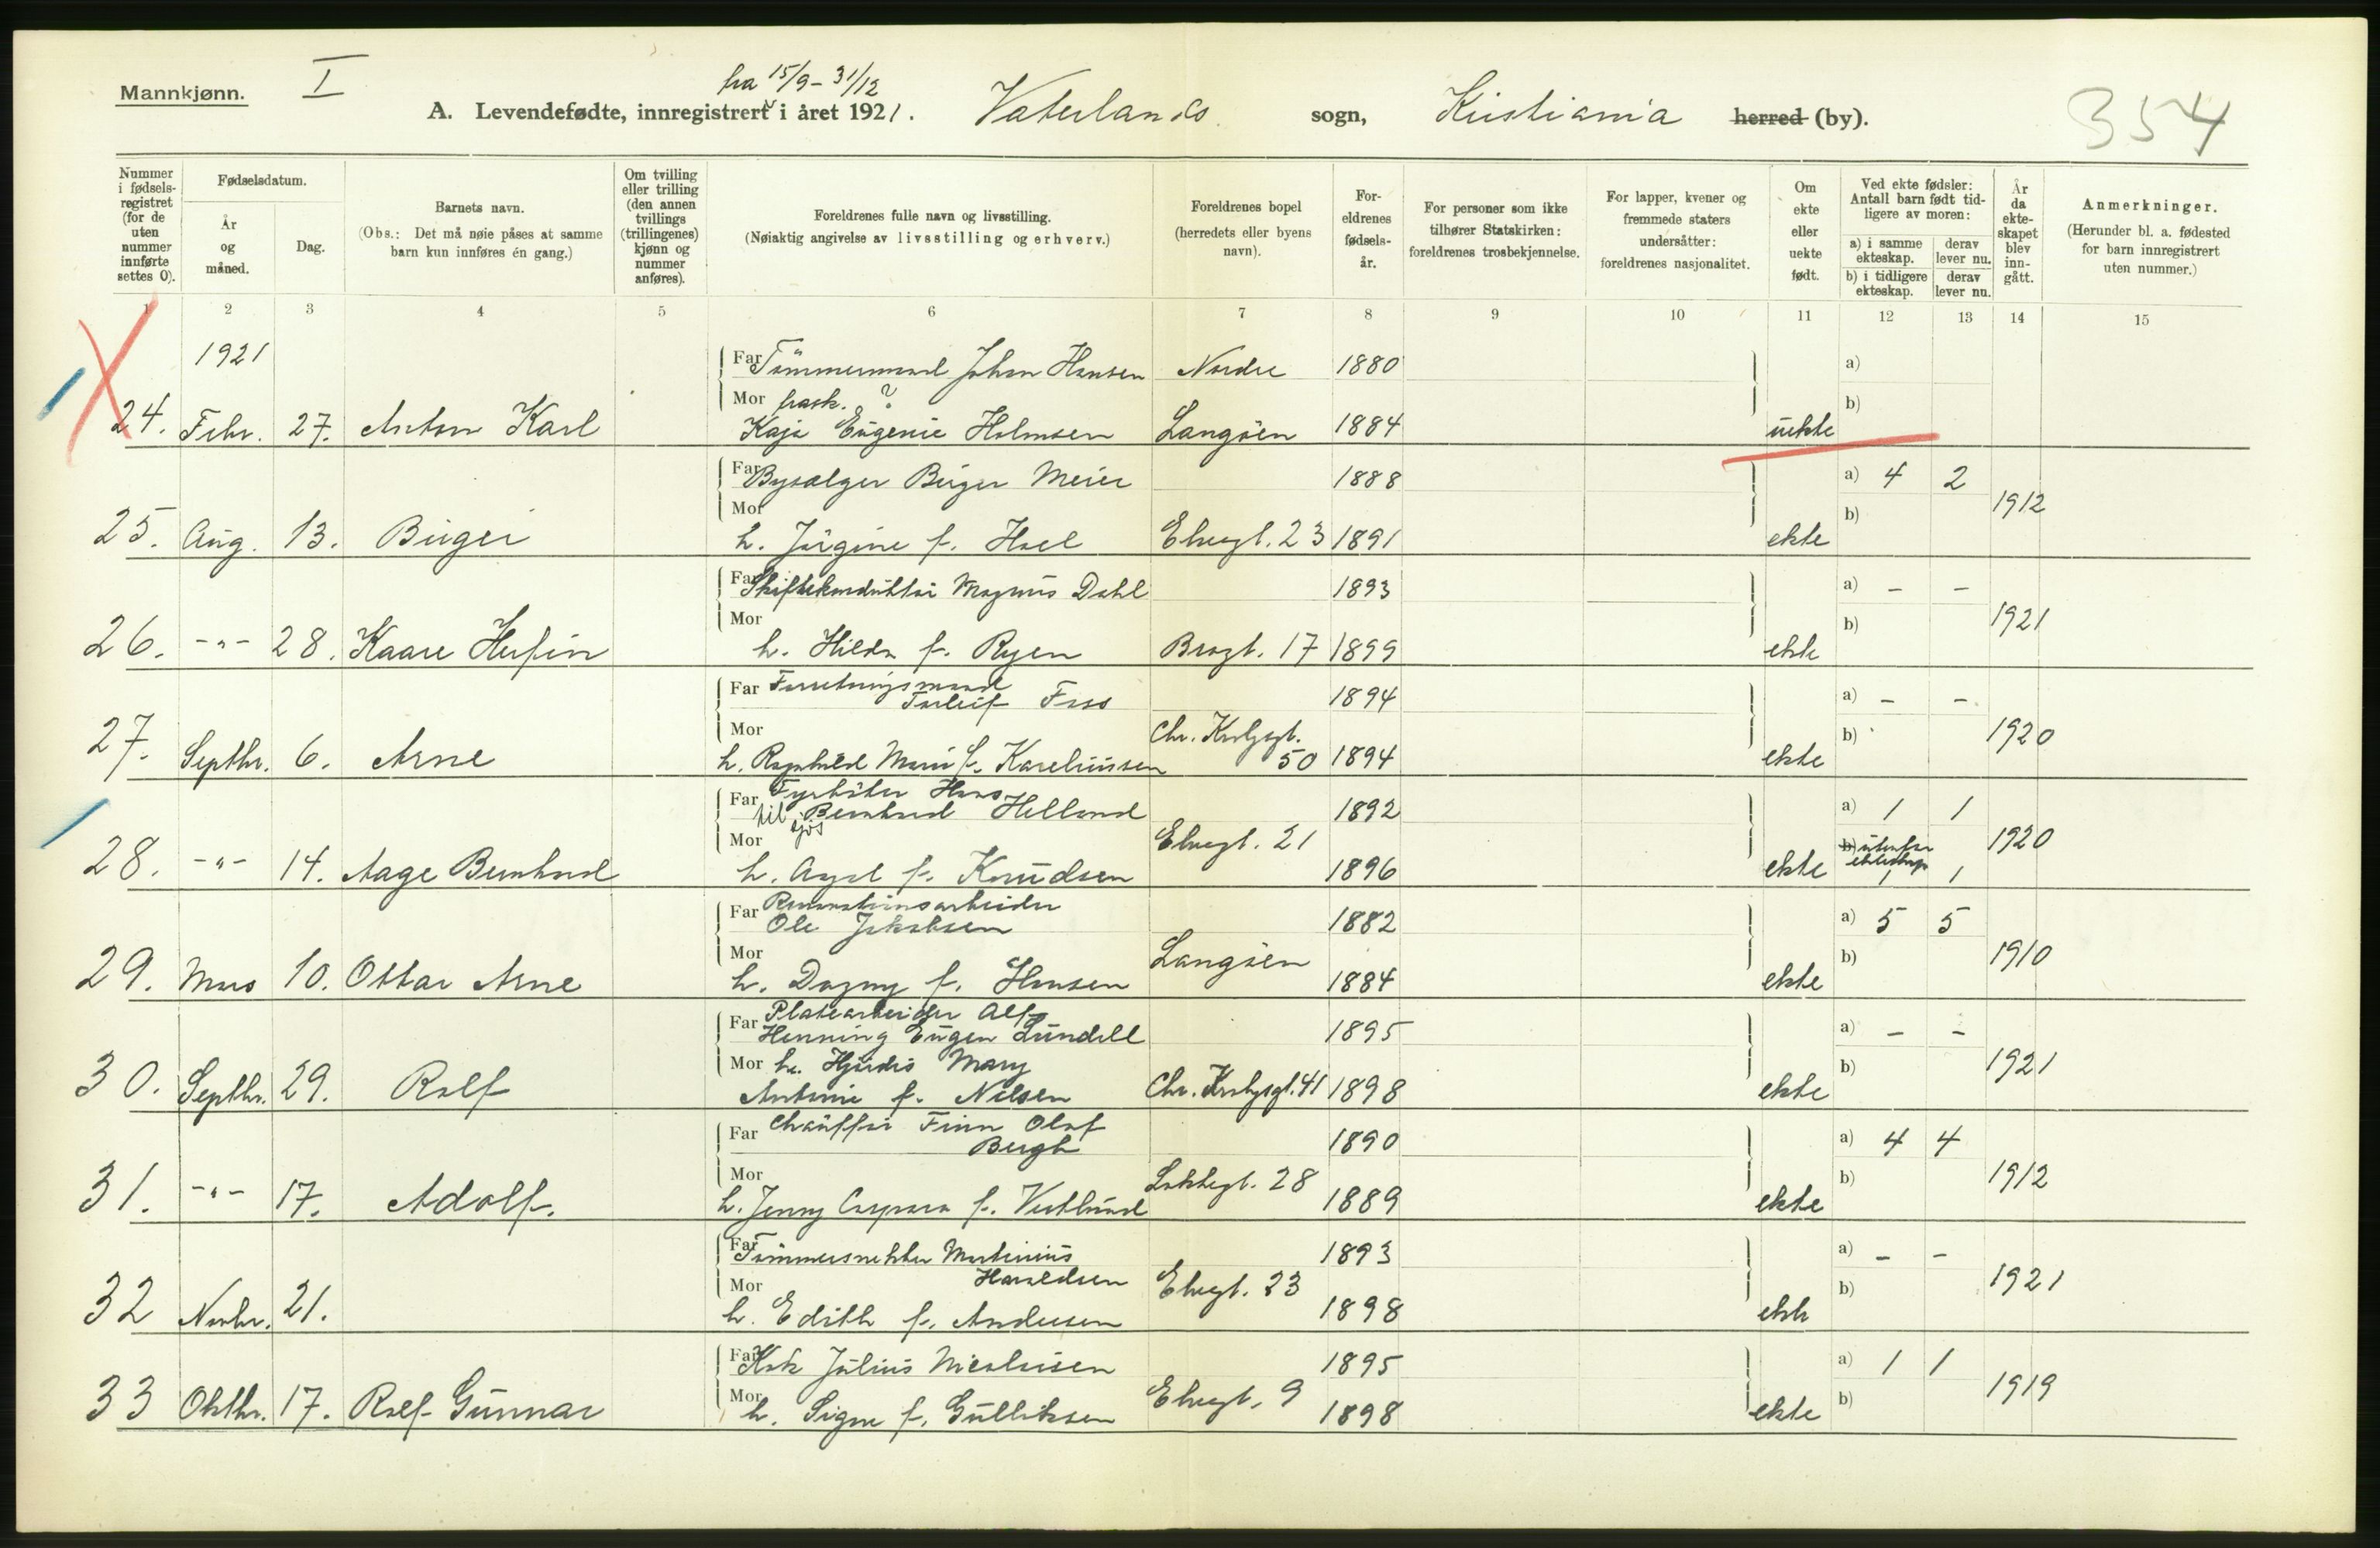 Mannkjønn. I
fra 15/9 - 31/12
A. Levendefødte, innregistrert i året 1921. Vaterlands sogn, Kristiania herred (by). 354
Nummer i fødselsregistret (for de uten nummer innførte settes 0).
Fødselsdatum.
År og måned.
Dag.
Barnets navn.
(Obs.: Det må nøie påses at samme barn kun innføres én gang.)
Om tvilling eller trilling (den annen tvillings (trillingenes) kjønn og nummer anføres).
Foreldrenes fulle navn og livsstilling.
(Nøiaktig angivelse av livsstilling og erhverv.)
Foreldrenes bopel (herredets eller byens navn).
Foreldrenes fødselsår.
For personer som ikke tilhører Statskirken: foreldrenes trosbekjennelse.
For lapper, kvener og fremmede staters undersåtter: foreldrenes nasjonalitet.
Om ekte eller uekte født.
Ved ekte fødsler: Antall barn født tidligere av moren:
a) i samme ekteskap. derav lever nu.
b) i tidligere ekteskap. derav lever nu.
År da ekteskapet blev inngått.
Anmerkninger.
(Herunder bl. a. fødested for barn innregistrert uten nummer.)
1 2 3 4 5 6 7 8 9 10 11 12 13 14 15
1921
Far Tömmermand Johan Hansen Nordre 1880 a)
Mor frask. ? b)
24. Febr. 27. Anton Karl Kaja Eugenie Holmsen Langöen 1884 uekte
Far Bysælger Birger Meier 1888 a) 4 2
Mor b) 1912
25. Aug. 13. Birger h. Jörgine f. Hoel Elvegt. 23 1891 ekte
Far Skiftekonduktör Magnus Dahl 1893 a) - -
Mor b) 1921
26. -"- 28. Kaare Herfin h. Hilda f. Ryen Brogt. 17 1899 ekte
Far Forretningsmand
Torleif Foss 1894 a) - -
Mor Chr. Krohgsgt. b) 1920
27. Septbr. 6. Arne h. Ragnhild Marie f. Kareliussen 50 1894 ekte
Far Fyrböter Hans
til sjös Bernhard Helland 1892 a) 1 1
Mor Elvegt. 21 b) utenfor ekteskap 1920
28. -"- 14. Aage Bernhard h. Aagot f. Knudsen 1896 ekte 1 1
Far Renovationsarbeider
Ole Jakobsen 1882 a) 5 5
Mor Langöen b) 1910
29. Mars 10. Ottar Arne h. Dagny f. Hansen 1884 ekte
Far Platearbeider Alf
Henning Eugen Lundell 1895 a) - -
Mor h. Hjördis Mary b) 1921
30. Septbr. 29. Rolf Antonie f. Nilsen Chr. Krohgsgt. 41 1898 ekte
Far Chaufför Finn Olaf
Bergh 1890 a) 4 4
Mor Lakkegt. 28 b) 1912
31. -"- 17. Adolf. h. Jenny Caspara f. Vestlund 1889 ekte
Far Tömmersnekker Martinius 1893 a) - -
Mor Haraldsen Elvegt. 23 b) 1921
32 Novbr. 21. h. Edith f. Andersen 1898 ekte
Far Kok Julius Nicolaisen 1895 a) 1 1
Mor Elvegt. 9 b) 1919
33 Oktbr. 17. Rolf Gunnar h. Signe f. Gulliksen 1898 ekte